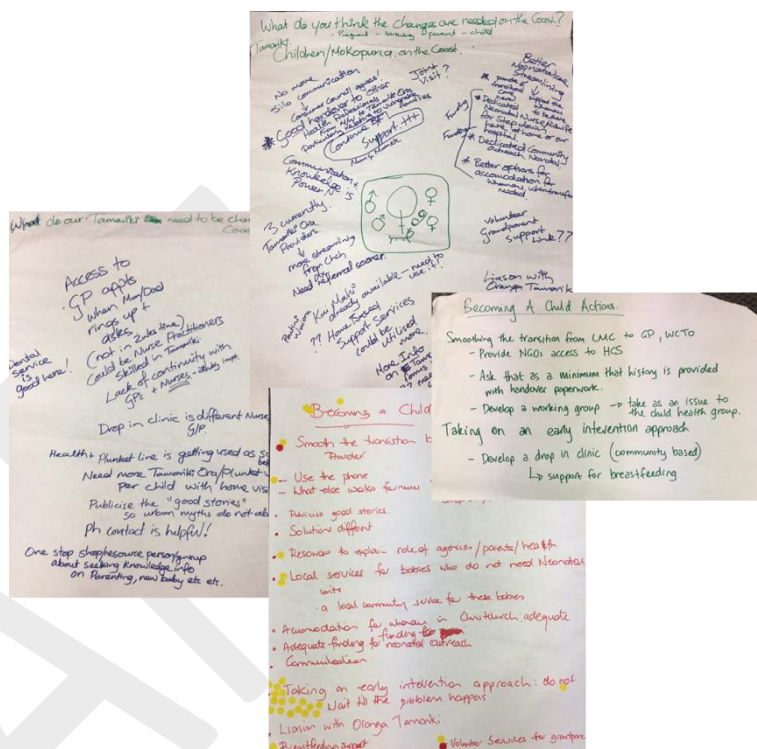 What do you think the Changes are needed on the Coast?
- Pregnant - birthing - parent - child
Tamariki
Children/Mokopuna on the Coast.
No more
Silo communication
Consumer Council agrees!
* Good handover to other
Health Professionals
Particularly relative to vulnerable
families
Continue
Support +++
Communication +
Knowledge is
Power!
3 currently
Tamariki Ora
Providers.
more streamlining
from Chch
Need referral sooner.
Kau Mahi
already available - need to
use it!
?? Home Based
Support Services
could be
utilised
more.
More Info
on
Joint
Visit?
Better
Neonatal care
Streamlining
Funding
* Dedicated
Neonatal Nurse/Midwife
for Step down
care at home or our
hospital
Funding
* Dedicated Community
outreach Neonatal
* Better options for
accomodation for
whanau, when transfer
needed.
Volunteer
Grandparent
support
Link??
Liason with
Oranga Tamariki
What do our Tamariki need to be
Access to
GP appts
when Mum/Dad
rings up +
asks
(not in 2wks time)
Could be Nurse Practitioners
Skilled in Tamariki
Lack of continuity with
GPs + Nurses
Dental
service
is
good here!
Drop in clinic is different Nurse
G/P.
Health + Plunket line is getting used as
Need more Tamariki Ora/Plunket
per child with home
Publicise the "good stories"
so urban myths do not
Ph contact is helpful!
One stop shop/resource person/group
about seeking knowledge info
on Parenting, new baby etc etc.
Becoming A Child Actions.
Smoothing the transition from LMC to GP, WCTO
- Provide NGOs access to HCS
- Ask that as a minimum that history is provided
with handover paperwork.
- Develop a working group → take as an issue to
the child health group.
Taking on an early intervention approach
- Develop a drop in clinic (community based)
↳ support for breastfeeding
Becoming a Child
• Smooth the transistion
Provider
- Use the phone
- What else works for
• Publicise good stories.
• Solutions different
• Resources to explain role of agencies/parents/health
• Local services for babies who do not need Neonatal
units
- a local community service for these babies
• Accomodation for whanau in Christchurch: adequate
funding
• Adequate funding for neonatal outreach
• Communication
• Taking an early intervention approach: do not
Wait till the problem happens
• Liasion with Oranga Tamariki
• Breastfeeding support
• Volunteer Services for